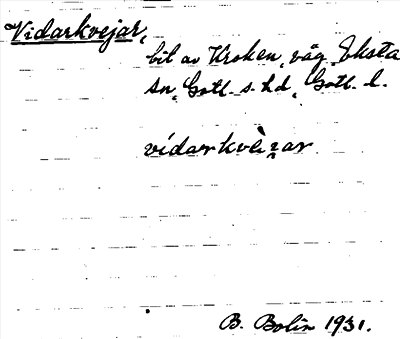 Vidarkvejar,
bit av Kroken, väg, Eksta
sn, Gotl. s. hd, Gotl. l.
vídarkvèi̯ar
B. Bolin 1931.